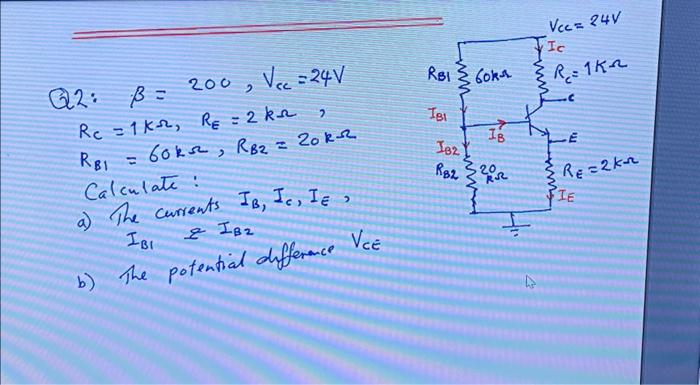 Q2: β = 200, Vcc = 24V
Rc = 1KΩ, RE = 2kΩ,
RB1 = 60kΩ, RB2 = 20kΩ
Calculate:
a) The currents IB, Ic, IE,
IB1 & IB2
b) The potential difference VCE
Vcc = 24V
Ic
RB1 60kΩ
Rc = 1KΩ
c
IB1
IB
E
IB2
RB2 20kΩ
RE = 2kΩ
IE